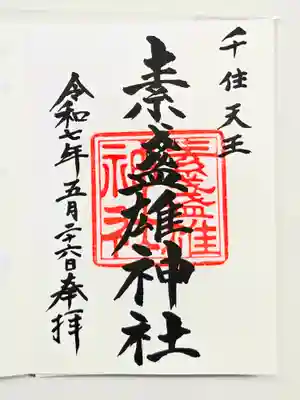 千住天王
素盞雄神社
令和七年五月二十六日奉拝